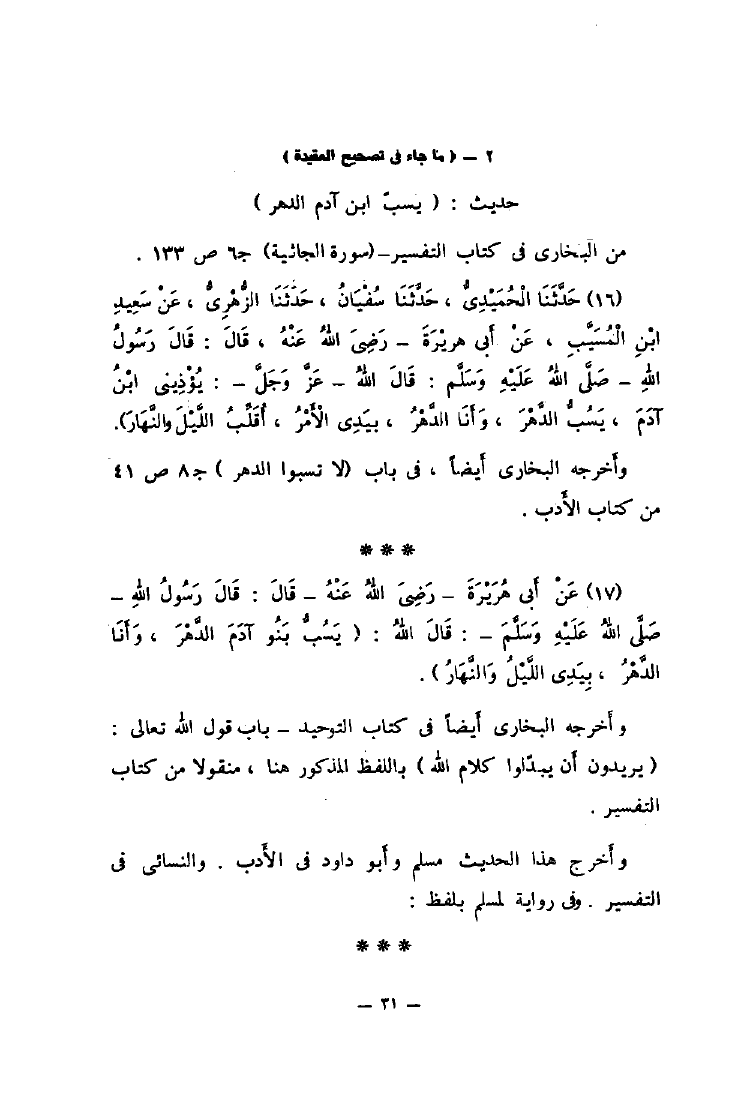 ٢ – ( ما جاء فى تصحيح العقيدة )
حديث : ( يسبّ ابن آدم الدهر )
من البخارى فى كتاب التفسير–(سورة الجاثية) ج٦ ص ١٣٣ .
(١٦) حَدَّثَنَا الْحُمَيْدِىُّ ، حَدَّثَنَا سُفْيَانُ ، حَدَّثَنَا الزُّهْرِىُّ ، عَنْ سَعِيدِ
ابْنِ الْمُسَيَّبِ ، عَنْ أَبِى هريْرَةَ – رَضِىَ اللهُ عَنْهُ ، قَالَ : قَالَ رَسُولُ
اللهِ – صَلَّى اللهُ عَلَيْهِ وَسَلَّم : قَالَ اللهُ – عَزَّ وَجَلَّ – : يُؤْذِينِى ابْنُ
آدَمَ ، يَسُبُّ الدَّهْرَ ، وَأَنَا الدَّهْرُ ، بِيَدِى الْأَمْرُ ، أُقَلِّبُ اللَّيْلَ والنَّهَارَ).
وأخرجه البخارى أيضاً ، فى باب (لا تسبوا الدهر ) ج٨ ص ٤١
من كتاب الأدب .
***
(١٧) عَنْ أَبِى هُرَيْرَةَ – رَضِىَ اللهُ عَنْهُ – قَالَ : قَالَ رَسُولُ اللهِ –
صَلَّى اللهُ عَلَيْهِ وَسَلَّمَ – : قَالَ اللهُ : ( يَسُبُّ بَنُو آدَمَ الدَّهْرَ ، وَأَنَا
الدَّهْرُ ، بِيَدِى اللَّيْلُ وَالنَّهَارُ ) .
وأخرجه البخارى أيضاً فى كتاب التوحيد – باب قول الله تعالى :
( يريدون أن يبدّلوا كلام الله ) باللفظ المذكور هنا ، منقولا من كتاب
التفسير .
وأخرج هذا الحديث مسلم وأبو داود فى الأدب . والنسائى فى
التفسير . وفى رواية لمسلم بلفظ :
***
– ٣١ –